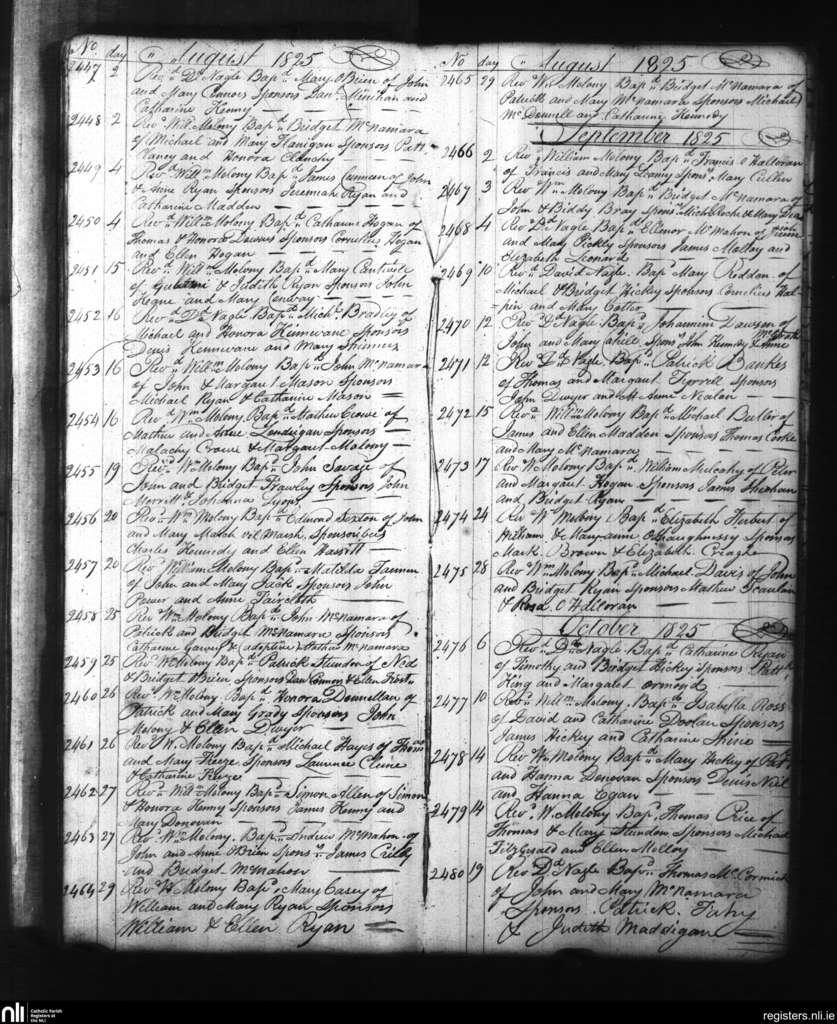 No. day " August 1825
2447 2 Revd. Dd. Nagle Bapd. Mary O'Brien of John
and Mary Connors Sponsors Danl. Minihan and
Catharine Kenny
2448 2 Revd. Will Molony Bapd. Bridget McNamara
of Michael and Mary Flanigan Sponsors Patt
and Honora
2449 4 Revd. Willm Molony Bapd. James Cunneen of John
& Anne Ryan Sponsors Jeremiah Ryan and
Catharine Madden
2450 4 Revd. Willm Molony Bapd. Catharine Hogan of
Thomas & Honora Sponsors Cornelius Hogan
and Ellen Hogan
2451 15 Revd. Willm Molony Bapd. Mary
of & Judith Ryan Sponsors John
and Mary Conway
2452 16 Revd. Dd. Nagle Bapd. Michl. Bradley of
Michael and Honora Hinnevane Sponsors
Denis Hennevane and Mary
2453 16 Revd. Willm Molony Bapd. John McNamara
of John & Margaret Mason Sponsors
Michael Ryan & Catharine Mason
2454 16 Revd. Wm. Molony Bapd. Mathew Crowe of
Mathew and Anne Londrigan Sponsors
Malachy Crowe & Margaret Molony
2455 19 Revd. W. Molony Bapd. John Savage of
John and Bridget Frawley Sponsors John
Merritt & Johanna Lyons
2456 20 Revd. Wm. Molony Bapd. Edmond Sexton of John
and Mary Marsh Sponsoribus
Charles Kennedy and Ellen Hassitt
2457 20 Revd. William Molony Bapd. Matilda
of John and Mary Sponsors John
Power and Anne Faircloth
2458 25 Revd. Wm. Molony Bapd. John McNamara of
Patrick and Bridget McNamara Sponsors
Catharine & (adoptive) Arthur McNamara
2459 25 Revd. W. Molony Bapd. Patrick of Ned
& Bridget Brien Sponsors Dan Connors & Ellen
2460 26 Revd. W. Molony Bapd. Honora Donnellan of
Patrick and Mary Grady Sponsors John
Molony & Ellen Dwyer
2461 26 Revd. W. Molony Bapd. Michael Hayes of Thoms.
and Mary Sponsors Laurence
& Catharine
2462 27 Revd. Willm Molony Bapd. Simon Allen of Simon
& Honora Kenny Sponsors James Kenny and
Mary Donovan
2463 27 Revd. Wm. Molony Bapd. Andrew McMahon of
John and Anne O'Brien Sponsrs. James
and Bridget McMahon
2464 29 Revd. W. Molony Bapd. Mary Carey of
William and Mary Ryan Sponsors
William & Ellen Ryan
No day " August 1825
2465 29 Revd. Wm. Molony Bapd. Bridget McNamara of
Patrick and Mary McNamara Sponsors Michael
McDonnell and Catharine Kennedy
September 1825
2466 2 Revd. William Molony Bapd. Francis O Halloran
of Francis and Mary Sponsrs. Mary Cullen
2467 3 Revd. Wm. Molony Bapd. Bridget McNamara of
John & Biddy Bray Sponsrs. Michl. Roche & Mary
2468 4 Revd. Dd. Nagle Bapd. Ellinor McMahon of
and Mary Sponsors James Molloy and
Elizabeth Leonard
2469 10 Revd. David Nagle Bapd. Mary Riddan of
Michael & Bridget Hickey Sponsors Cornelius Hal-
=pin and Mary Cotter
2470 12 Revd. Dd. Nagle Bapd. Johannem Dawson of
John and Mary Sponsrs. John Kennedy & Anne
2471 12 Revd. Dd. Nagle Bapd. Patrick Bankes
of Thomas and Margaret Tyrrell Sponsors
John Dwyer and Anne Nealon
2472 15 Revd. Willm Molony Bapd. Michael Butler of
James and Ellen Madden Sponsors Thomas Cooke
and Mary McNamara
2473 17 Revd. W. Molony Bapd. William Mulcahy of Peter
and Margaret Hogan Sponsors James Sheehan
and Bridget Ryan
2474 24 Revd. W. Molony Bapd. Elizabeth Herbert of
William & Mary Anne O Shaughnessy Sponsors
Mark Brown & Elizabeth Creaghe
2475 28 Revd. Wm. Molony Bapd. Michael Davis of John
and Bridget Ryan Sponsors Mathew Scanlan
& Rosd. O Halloran
October 1825
2476 6 Revd. Dd. Nagle Bapd. Catharine Ryan
of Timothy and Bridget Hickey Sponsors Pattk.
King and Margaret Ormond
2477 10 Revd. Willm. Molony Bapd. Isabella Ross
of David and Catharine Doolan Sponsors
James Hickey and Catharine
2478 14 Revd. Wm. Molony Bapd. Mary Hickey of Patt
and Hanna Donovan Sponsors Denis Neil
and Hanna Egan
2479 14 Revd. W. Molony Bapd. Thomas Price of
Thomas & Mary Sponsors Michael
FitzGerald and Ellen Molloy
2480 19 Revd. Dd. Nagle Bapd. Thomas McCormick
of John and Mary McNamara
Sponsors Patrick Fahy
& Judith Maddigan
nli Catholic Parish
Registers at
the NLI
registers.nli.ie